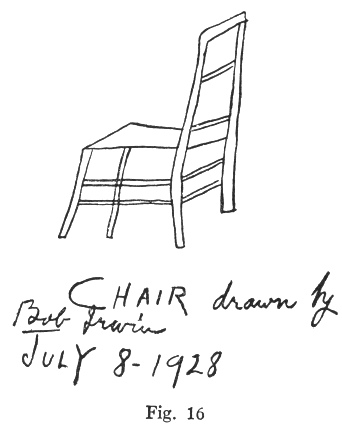 CHAIR drawn by
Bob Irwin
JULY 8-1928
Fig. 16